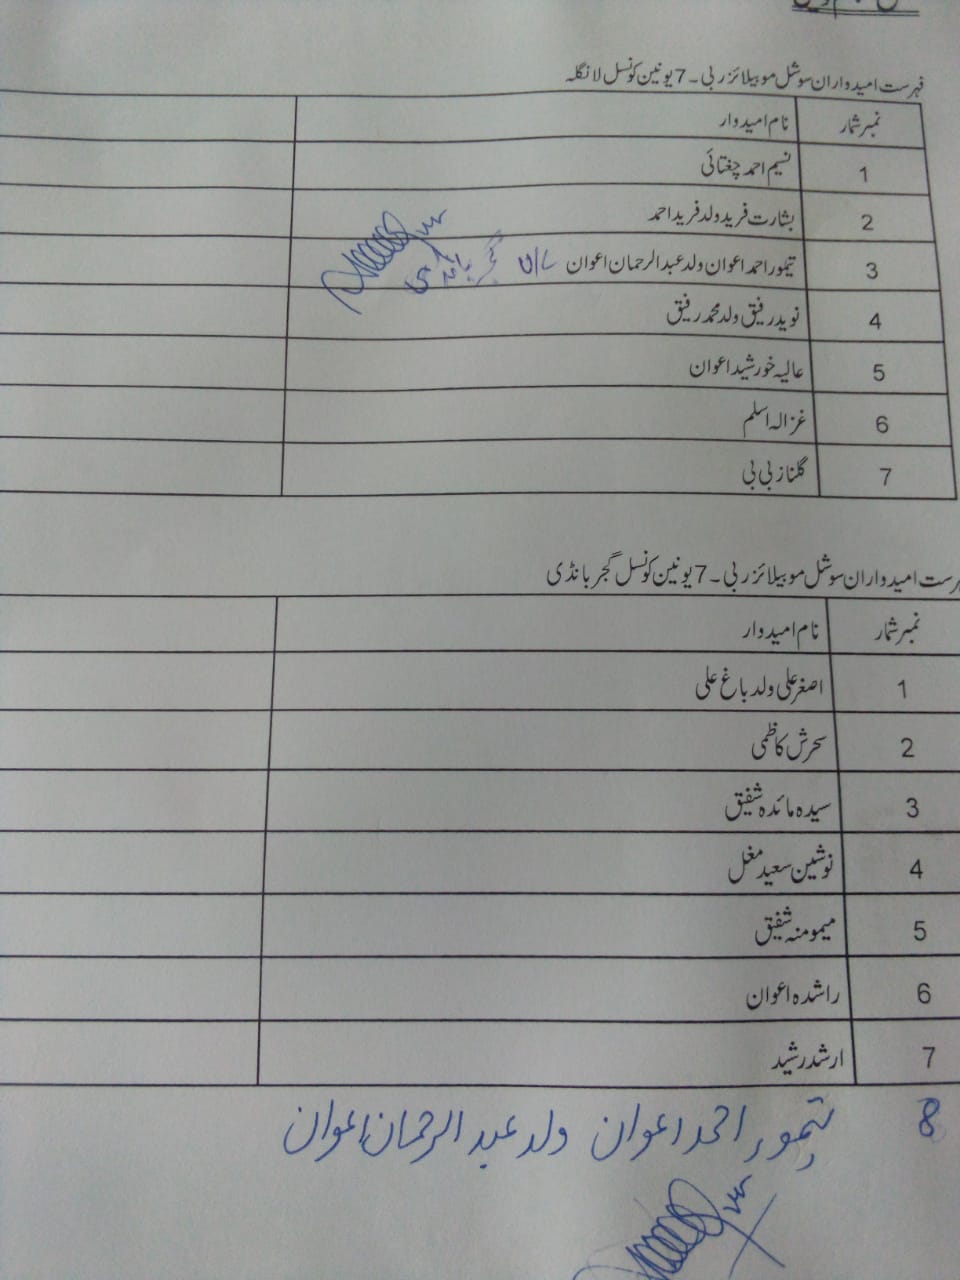 فہرست امیدواران سوشل موبیلائزر بی۔7 یونین کونسل لانگلہ
نمبر شمار نام امیدوار
1 نسیم احمد چغتائی
2 بشارت فرید ولد فرید احمد
3 تیمور احمد اعوان ولد عبدالرحمان اعوان گجر بانڈی
4 نوید رفیق ولد محمد رفیق
5 عالیہ خورشید اعوان
6 غزالہ اسلم
7 گلناز بی بی
فہرست امیدواران سوشل موبیلائزر بی۔7 یونین کونسل گجر بانڈی
نمبر شمار نام امیدوار
1 اصغر علی ولد باغ علی
2 سحرش کاظمی
3 سیدہ مائدہ شفیق
4 نوشین سعید مغل
5 میمومنہ شفیق
6 راشدہ اعوان
7 ارشد رشید
8 تیمور احمد اعوان ولد عبدالرحمان اعوان